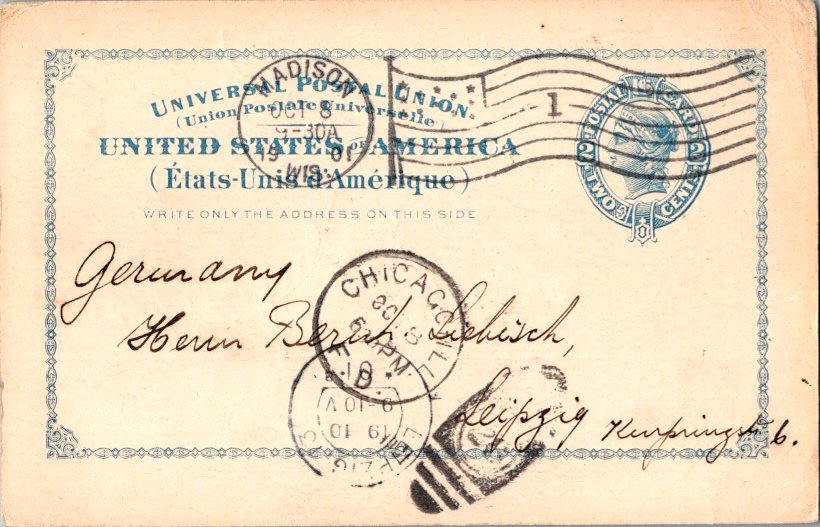 UNIVERSAL POSTAL UNION
(Union Postale Universelle)
UNITED STATES OF AMERICA
(États-Unis d'Amérique)
WRITE ONLY THE ADDRESS ON THIS SIDE
MADISON
OCT 8
9-30A
19 01
WIS.
1
POSTAL CARD
2 2
TWO CENTS
Germany
Herrn Bernh Liebisch,
Leipzig
6.
CHICAGO, ILL.
OCT 8
PM
F.D.
LEIPZIG
19 10
8-10V